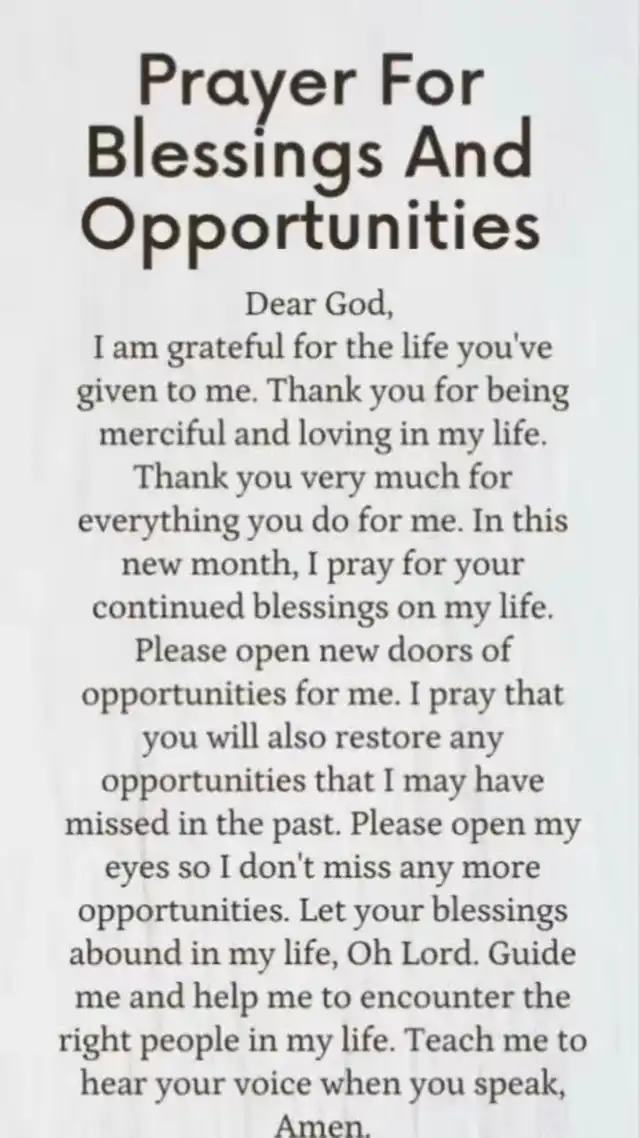 Prayer For
Blessings And
Opportunities
Dear God,
I am grateful for the life you've
given to me. Thank you for being
merciful and loving in my life.
Thank you very much for
everything you do for me. In this
new month, I pray for your
continued blessings on my life.
Please open new doors of
opportunities for me. I pray that
you will also restore any
opportunities that I may have
missed in the past. Please open my
eyes so I don't miss any more
opportunities. Let your blessings
abound in my life, Oh Lord. Guide
me and help me to encounter the
right people in my life. Teach me to
hear your voice when you speak,
Amen.